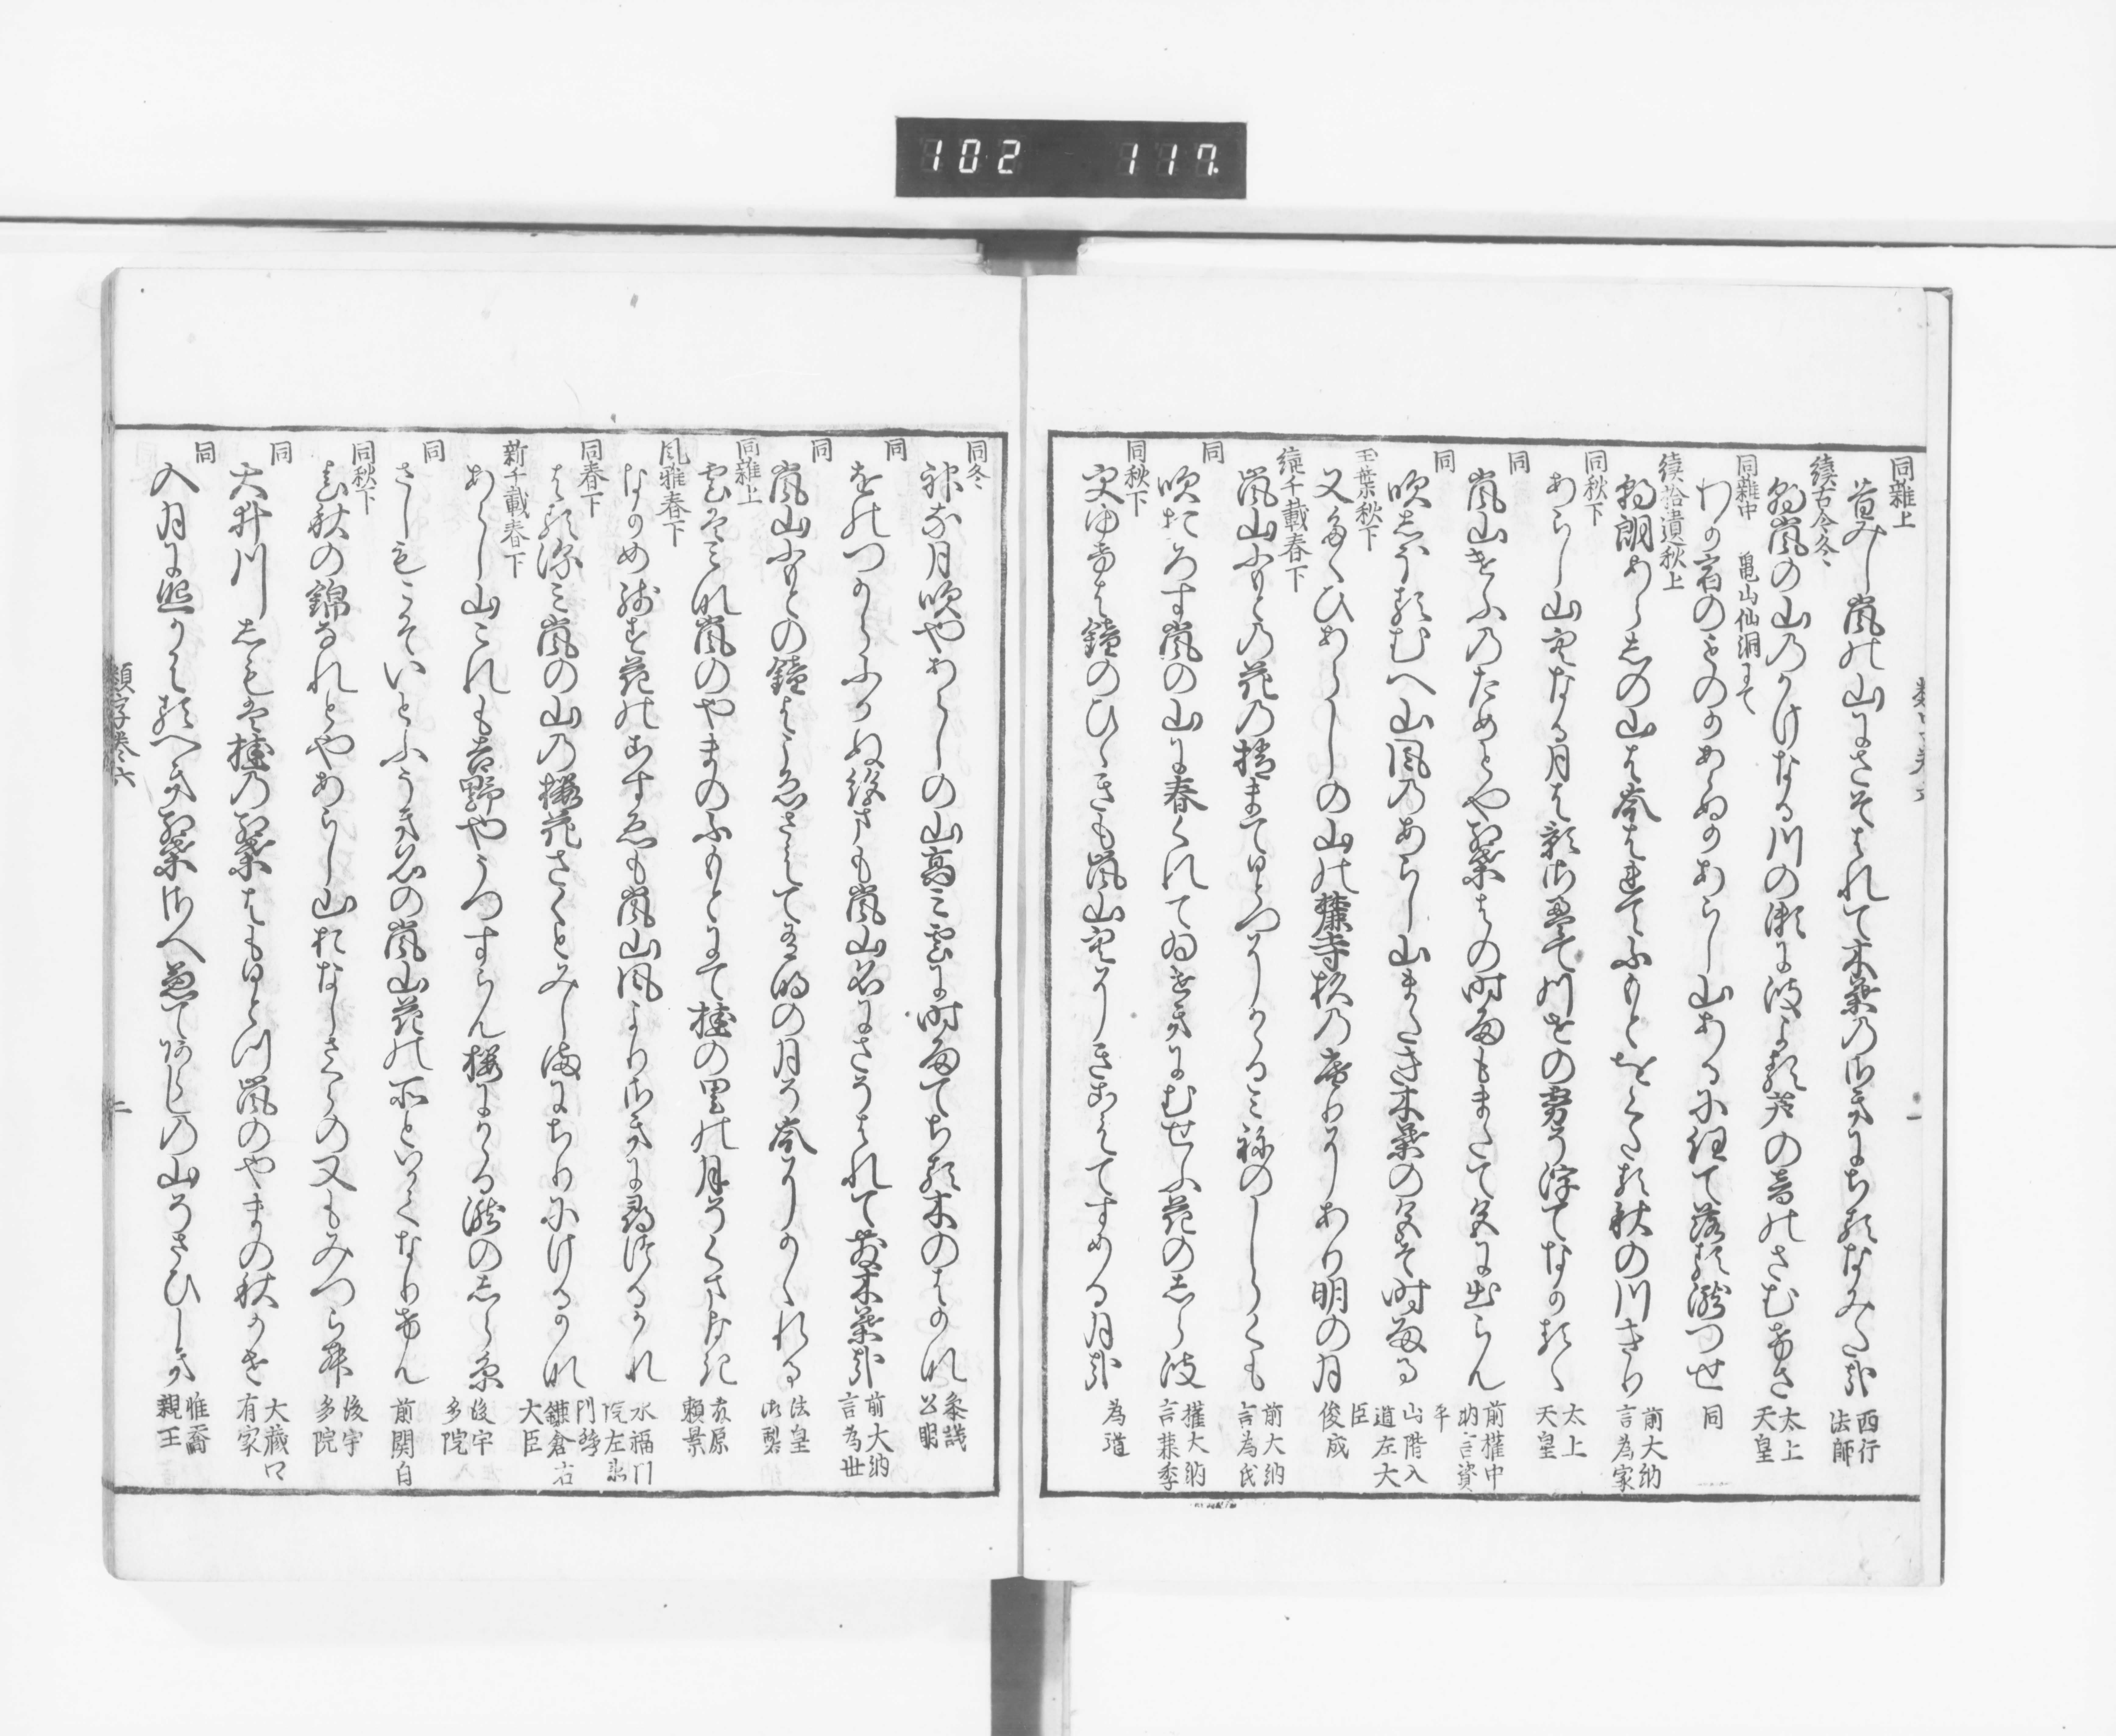 同雑上
昔みし嵐の山にさそはれて木葉のさきにちるなみた哉 西行法師
続古今冬 亀山仙洞にて
朝嵐の山のかけなる川の瀬に波よる芦の音のさむけさ 太上天皇
同雑中
わか宿のものかあらぬかあらし山あるに任て落る瀧つせ 同
続拾遺秋上
朝朗あらしの山は峯はれてふもとをくたる秋の川きり 前大納言為家
同秋下
あらし山空なる月は影さえて川せの霧そ浮てなかるゝ 太上天皇
同
嵐山けふのためとや紅葉はの時雨もまたて色に出らん 前権中納言資平
同
吹しほるむへ山風のあらし山またき木葉の色そ時雨る 山階入道左大臣
玉葉秋下
又たくひあらしの山の麓寺杉の庵にあり明の月 俊成
続千載春下
嵐山ふもとの花の梢まてひとつにかゝるみねのしらくも 前大納言為氏
同
吹おろす嵐の山に春くれてゐせきにむせふ花のしら波 権大納言兼季
同秋下
更ゆけは鐘のひゝきも嵐山空にきこえてすめる月哉 為道
同冬
神な月吹やあらしの山高み雲に時雨てちる木のはかな 参議公明
同
をのつからふかぬ絶まも嵐山名にさそはれて散木葉哉 前大納言為世
同
嵐山ふもとの鐘はこゑさえて有明の月そ峯にかゝれる 法皇御製
同雑上
雲はみな嵐のやまのふもとにて桂の里の月そくまなき 藤原頼景
風雅春下
なかめ残す花のこすゑも嵐山風よりさきに尋つるかな 永福門院左衛門督
同春下
はる深み嵐の山の桜花さくとみし間にちりにけるかな 鎌倉右大臣
新千載春下
あらし山これも吉野やうつすらん桜にかゝる瀧のしら糸 後宇多院
同
さしもこそいとふうき名の嵐山花の所といかてなりけん 前関白
同秋下
たか秋の錦なれとやあらし山おなしさくらの又もみつらん 後宇多院
同
大井川しもは桂の紅葉はもひとつ嵐のやまの秋かせ 大蔵卿有家
同
入月に照かはるへき紅葉さへ兼てあらしの山そさひしき 惟喬親王
類字巻六 二
102 117